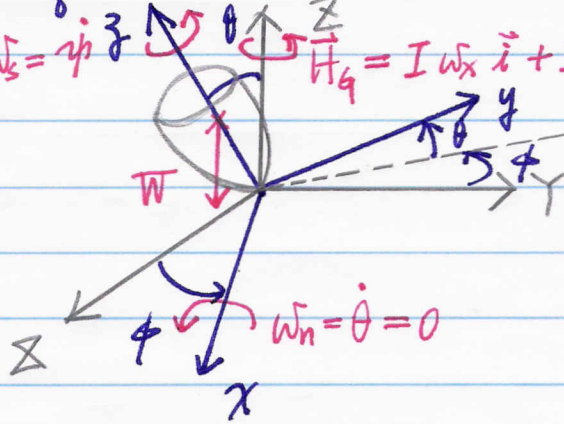 ω_s = ψ̇ z θ Z
H⃗_G = I ω_x i⃗ +
y
θ
W ϕ
Y
ϕ ω_n = θ̇ = 0
X
x